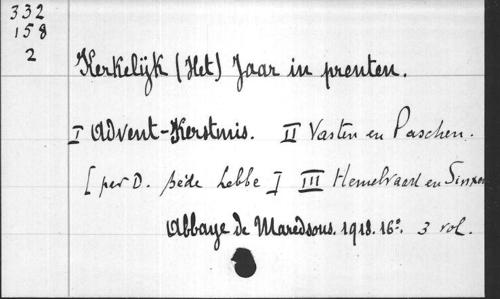 332
158
2
Kerkelijk (Het) Jaar in prenten.
I Advent-Kerstmis. II Vasten en Paschen.
[per D. Bède Lebbe] III Hemelvaart en Sinxen
Abbaye de Maredsous. 1918. 16°. 3 vol.